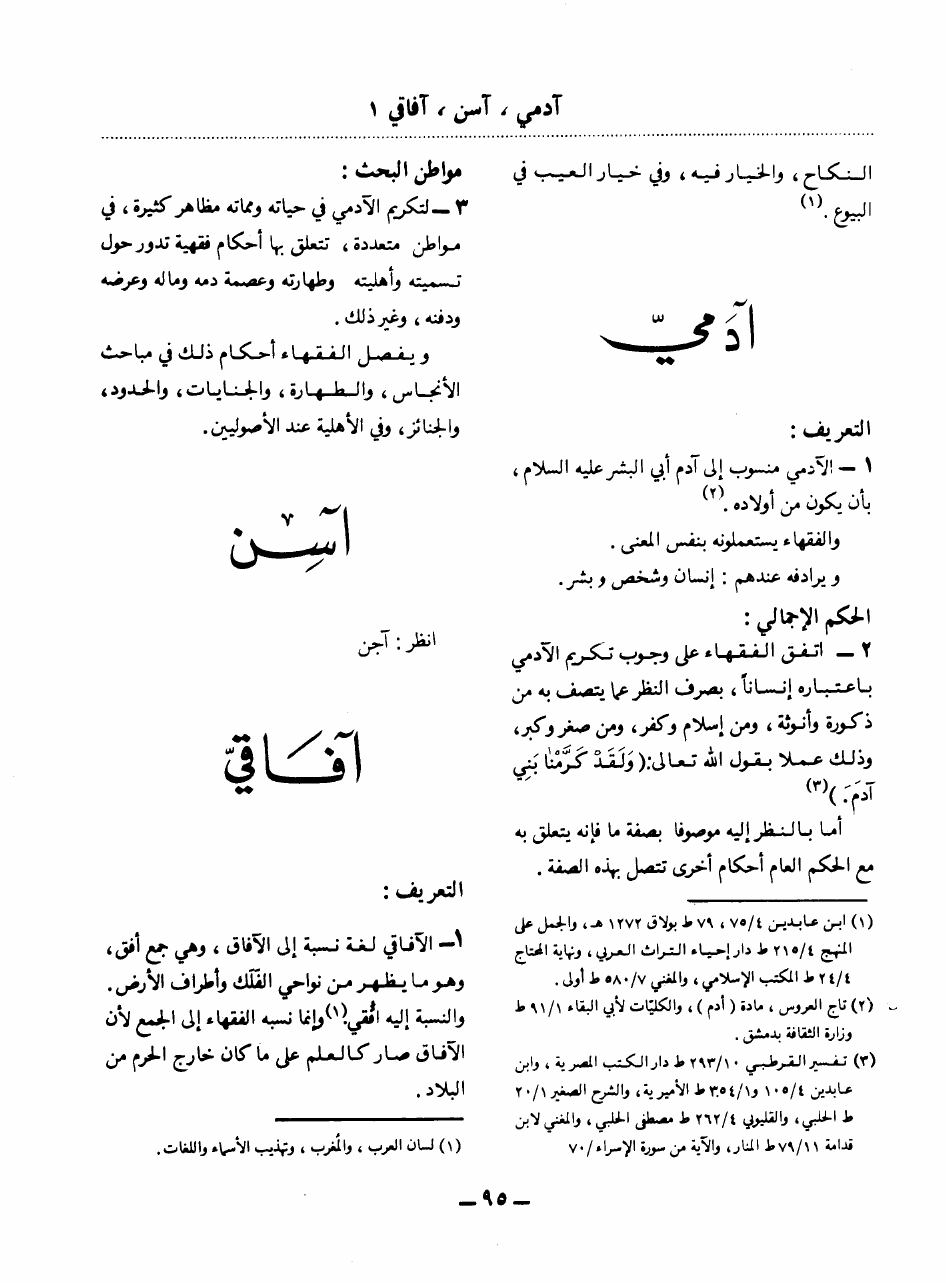 آدمي ، آسن ، آفاقي ١
النكاح ، والخيار فيه ، وفي خيار العيب في
البيوع .(١)
آدَمِيّ
التعريف :
١ – الآدمي منسوب إلى آدم أبي البشر عليه السلام ،
بأن يكون من أولاده .(٢)
والفقهاء يستعملونه بنفس المعنى .
ويرادفه عندهم : إنسان وشخص وبشر .
الحكم الإجمالي :
٢ – اتفق الفقهاء على وجوب تكريم الآدمي
باعتباره إنساناً ، بصرف النظر عما يتصف به من
ذكورة وأنوثة ، ومن إسلام وكفر، ومن صغر وكبر،
وذلك عملا بقول الله تعالى:( وَلَقَدْ كَرَّمْنَا بَنِي
آدَمَ . )(٣)
أما بالنظر إليه موصوفا بصفة ما فإنه يتعلق به
مع الحكم العام أحكام أخرى تتصل بهذه الصفة .
(١) ابن عابدين ٤/ ٧٥ ، ٧٩ ط بولاق ١٢٧٢ هـ، والجمل على
المنهج ٤/ ٢١٥ ط دار إحياء التراث العربي ، ونهاية المحتاج
٤/ ٢٤ ط المكتب الإسلامي ، والمغني ٧/ ٥٨٠ ط أولى .
(٢) تاج العروس ، مادة ( أدم ) ، والكليّات لأبي البقاء ١/ ٩١ ط
وزارة الثقافة بدمشق .
(٣) تفسير القرطبي ١٠/ ٢٩٣ ط دار الكتب المصرية ، وابن
عابدين ٤/ ١٠٥ و١/ ٣٥٤ ط الأميرية ، والشرح الصغير ١/ ٢٠
ط الحلبي ، والقليوبي ٤/ ٢٦٢ ط مصطفى الحلبي ، والمغني لابن
قدامة ١١/ ٧٩ ط المنار، والآية من سورة الإسراء / ٧٠
مواطن البحث :
٣ – لتكريم الآدمي في حياته ومماته مظاهر كثيرة ، في
مواطن متعددة ، تتعلق بها أحكام فقهية تدور حول
تسميته وأهليته وطهارته وعصمة دمه وماله وعرضه
ودفنه ، وغير ذلك .
ويفصل الفقهاء أحكام ذلك في مباحث
الأنجاس ، والطهارة ، والجنايات ، والحدود،
والجنائز، وفي الأهلية عند الأصوليين .
آسِن
انظر : آجن
آفَاقيّ
التعريف :
١– الآفاقي لغة نسبة إلى الآفاق ، وهي جمع أفق ،
وهو ما يظهر من نواحي الفَلَك وأطراف الأرض .
والنسبة إليه أفُقي.(١)وإنما نسبه الفقهاء إلى الجمع لأن
الآفاق صار كالعلم على ما كان خارج الحرم من
البلاد .
(١) لسان العرب ، والمُغرب ، وتهذيب الأسماء واللغات .
– ٩٥ –